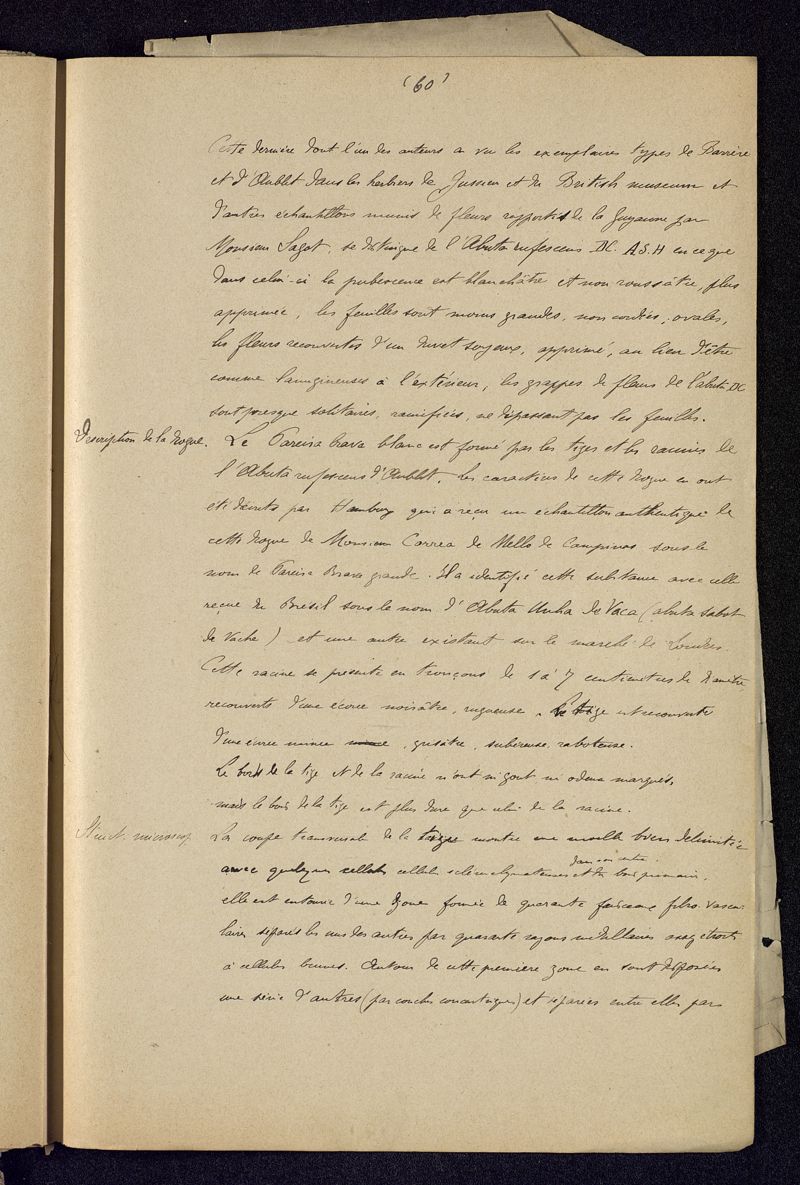 (60)
Cette dernière dont l'un des auteurs a vu les exemplaires types de Barrère
et d'Aublet dans les herbiers de Jussieu et du British museum et
d'autres échantillons munis de fleurs rapportés de la Guyanne par
Monsieur Sagot, se distingue de l'Abuta rufescens DC. A.S.H en ce que
dans celui-ci la pubescence est blanchâtre et non roussâtre, plus
apprimée, les feuilles sont moins grandes, non cordées, ovales,
les fleurs recouvertes d'un duvet soyeux, apprimé, au lieu d'être
comme lanugineuses à l'extérieur, les grappes de fleurs de l'abuta DC
sont presque solitaires, ramifiées, ne dépassant pas les feuilles.
Description de la drogue. Le Pareira brava blanc est formé par les tiges et les racines de
l'Abuta rufescens d'Aublet. Les caractères de cette drogue en ont
été décrits par Hanbury qui a reçu un échantillon authentique de
cette drogue de Monsieur Correa de Mello de Campinas sous le
nom de Pareira Brava grande. Il a identifié cette substance avec celle
reçue du Brésil sous le nom d'Abuta Unha de Vaca (abuta sabot
de Vache) et une autre existant sur le marché de Londres.
Cette racine se présente en tronçons de 1 à 7 centimètres de diamètre
recouverts d'une écorce noirâtre, rugueuse. La tige est recouverte
d'une écorce mince, grisâtre, subéreuse, raboteuse.
Le bois de la tige et de la racine n'ont ni gout ni odeur marqués,
mais le bois de la tige est plus dure que celui de la racine.
Struct. microscop La coupe transversale de la tige montre une moelle bien délimitée
dans son centre.
avec quelques cellules sclérenchymateuses et du bois primaire,
elle est entourée d'une zone formée de quarante faisceaux fibro-vascu-
laires séparés les uns des autres par quarante rayons médullaires assez étroits
à cellules brunes. Autour de cette première zone en sont disposées
une série d'autres (par couches concentriques) et séparées entre elles par